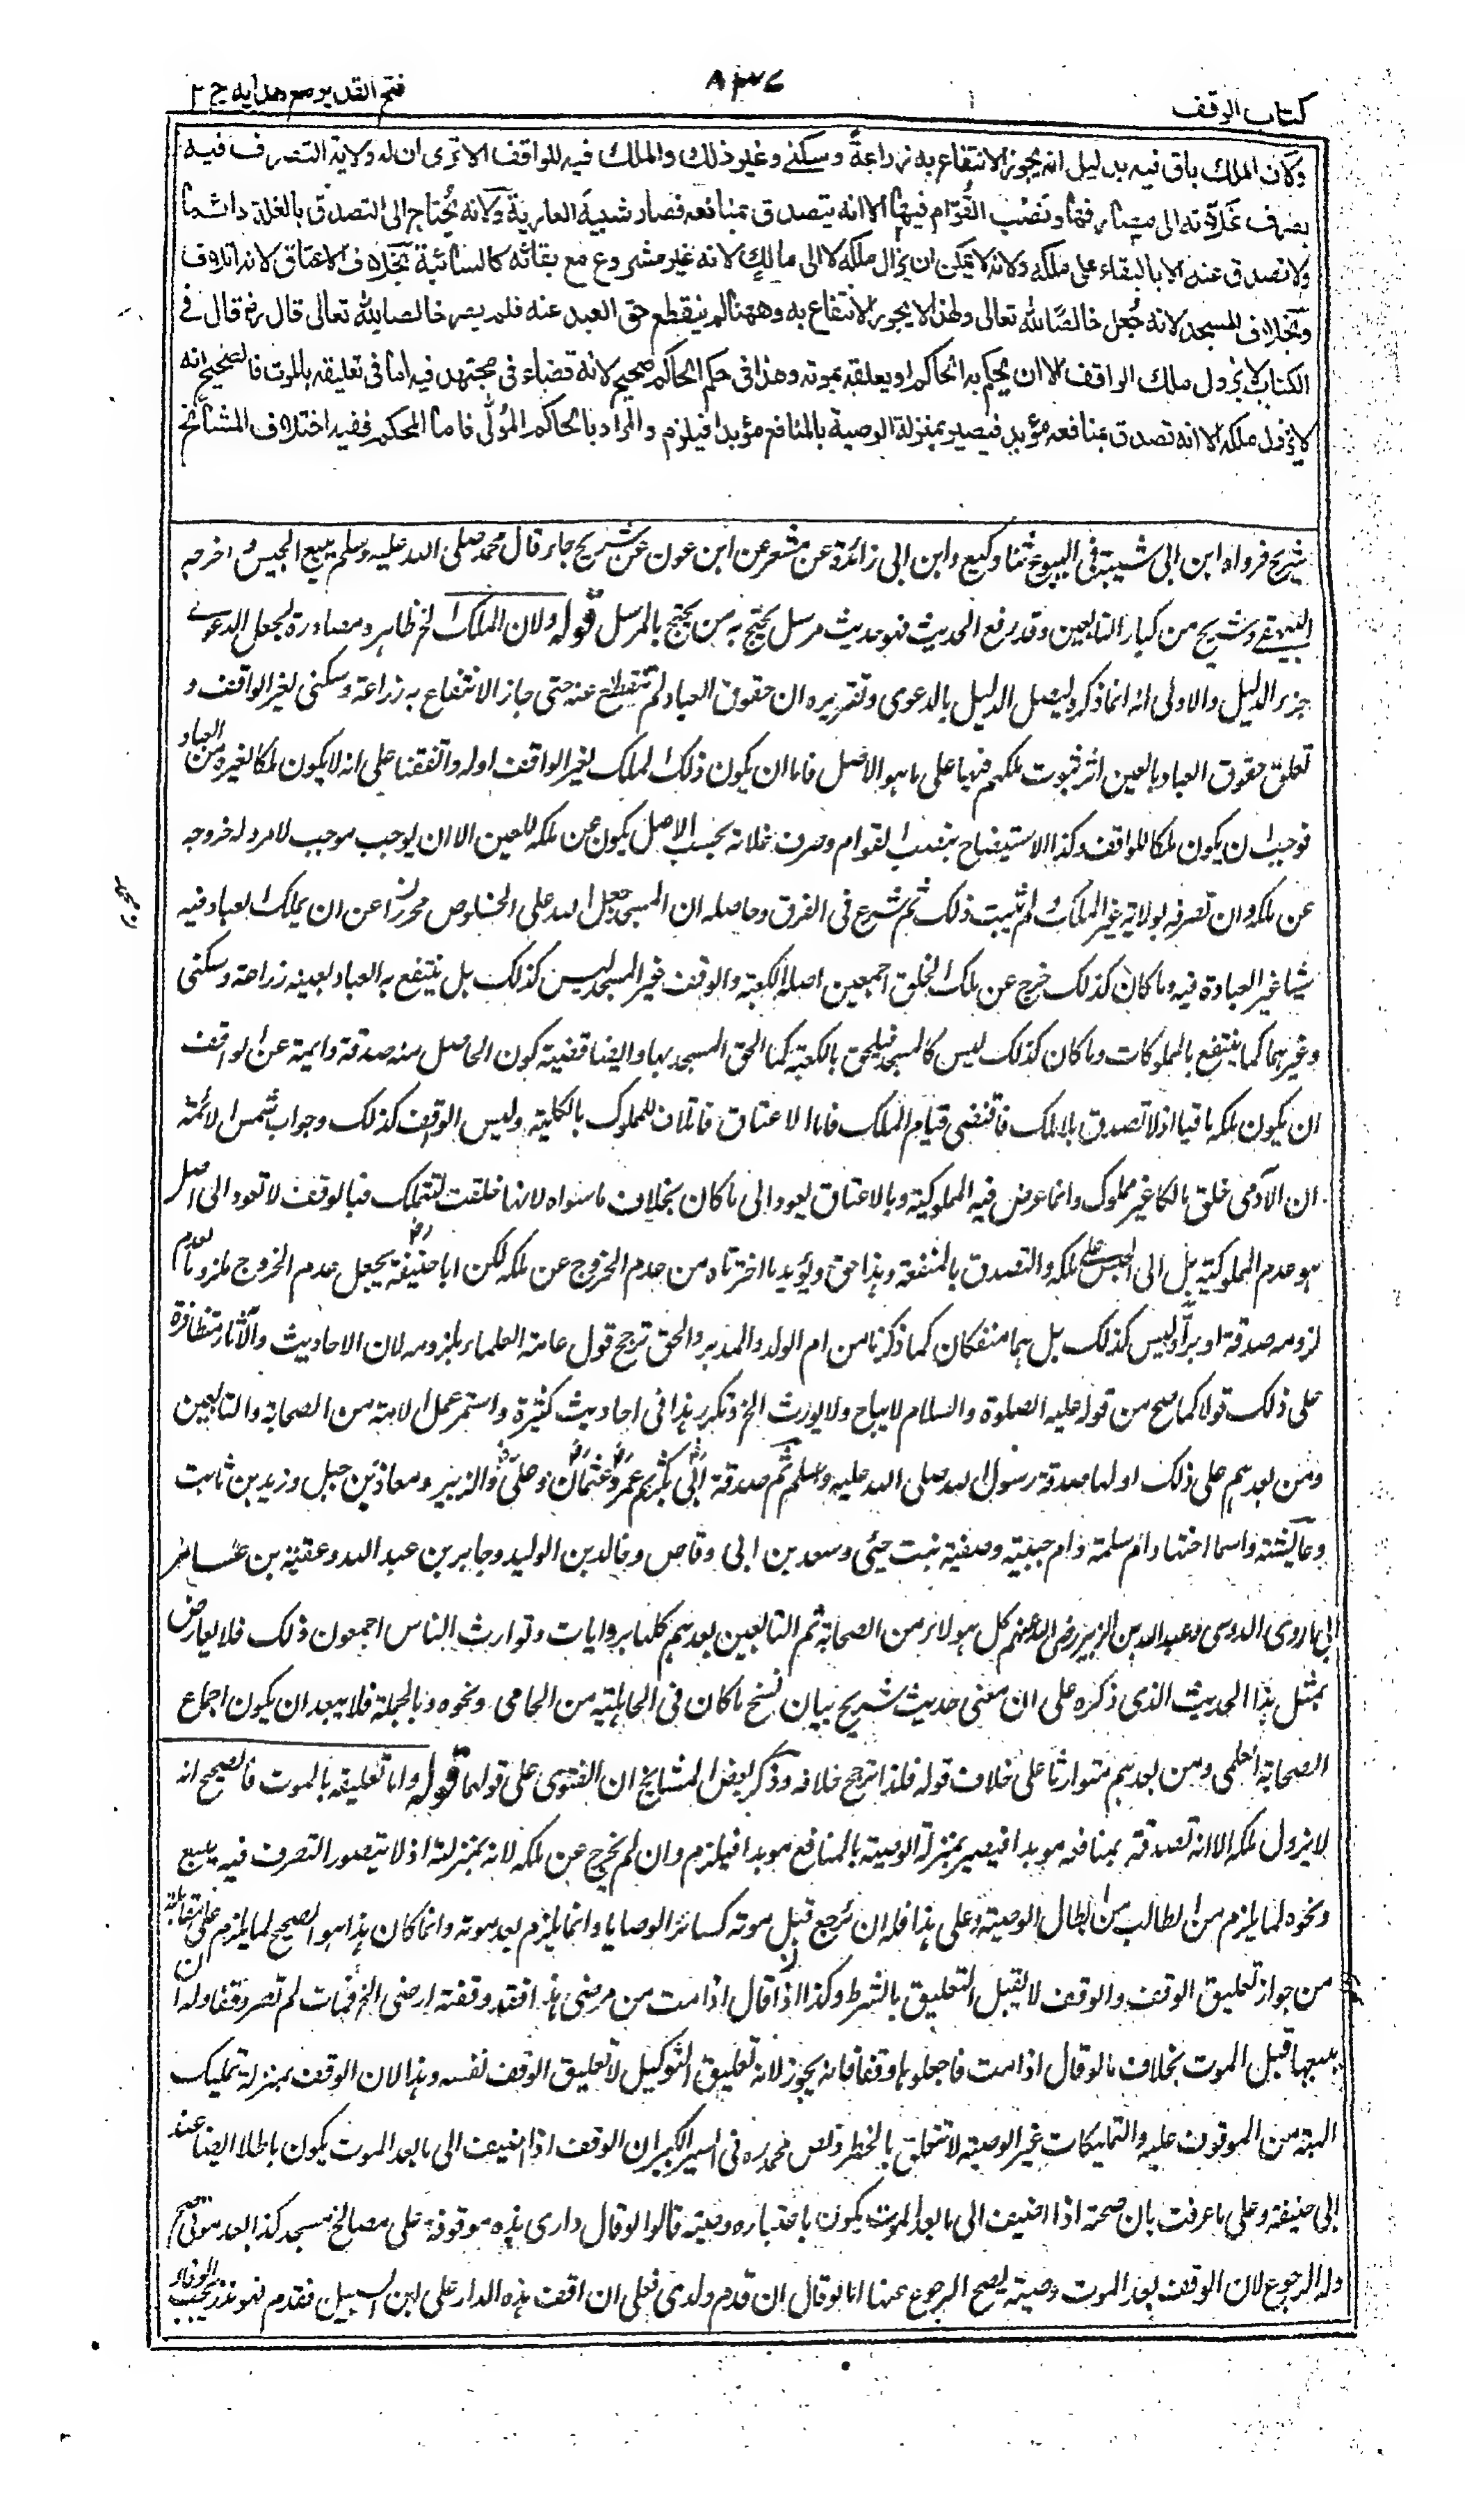 كتاب الوقف
٨٣٧
فتح القدير مع هدايه ج ٢
وكان الملك باق فيه بدليل انه يجوز الانتفاع به زراعةً وسكنے وغير ذلك والملك فيه للواقف الا ترى ان له ولاية التصرف فيه
بصرف غلاته الى مصارفها ونصب القُوّام فيها الا انه يتصدق بمنافعه فصار شبيه العارية ولانه يُحتاج الى التصدق بالغلة دائما
ولا تصدق عنه الا بالبقاء على ملكه ولانه لا يمكن ان يُزال ملكه لا الى مالكٍ لانه غير مشروع مع بقائه كالسائبة بخلاف الاعتاق لانه اتلاف
وبخلاف المسجد لانه جُعل خالصًا لله تعالى ولهذا لا يجوز الانتفاع به وههنا لم ينقطع حق العبد عنه فلم يصر خالصا لله تعالى قال رض قال فى
الكتاب لا يزول ملك الواقف الا ان يحكم به الحاكم او يعلقه بموته وهذا فى حكم الحاكم صحيح لانه قضاء فى مجتهد فيه اما فى تعليقه بالموت فالصحيح انه
لا يزول ملكه الا انه تصدق بمنافعه مؤبدا فيصير بمنزلة الوصية بالمنافع مؤبدا فيلزم والمراد بالحاكم المُولّى فاما المحكم ففيه اختلاف المشائخ
شريح فرواه ابن ابى شيبة فى البيوع ثنا وكيع وابن ابى زائدة عن مسعر عن ابن عون عن شريح جاء قال محمد صلى الله عليه وسلم ببيع الحبيس و اخرجه
البيهقے وشريح من كبار التابعين وقد رفع الحديث فهو حديث مرسل يحتج به من يحتج بالمرسل قوله ولان الملك الخ ظاهره مصادرة لجعل الدعوے
جزء الدليل والاولى انه انما ذكره ليصل الدليل بالدعوى وتقريره ان حقوق العباد لم تنقطع عنه حتى جاز الانتفاع به زراعة وسكنى لغير الواقف و
تعلق حقوق العباد بالعين اثر ثبوت ملكهم فيها على ما هو الاصل فاما ان يكون ذلك الملك لغير الواقف او له واتفقنا على انه لا يكون ملكا لغيره من العباد
فوجب ان يكون ملكا للواقف وكذا الاستيضاح بنصب القوام وصرف غلاته بحسب الاصل يكون عن ملكه للعين الا ان يوجب موجب لا مرد له خروجه
عن ملكه وان تصرفه بولاية غير الملك و لم يثبت ذلك ثم شرع فى الفرق وحاصله ان المسجد جعل لله على الخلوص محررا عن ان يملك العباد فيه
شيئا غير العبادة فيه وما كان كذلك خرج عن ملك الخلق اجمعين اصله الكعبة والوقف غير المسجد ليس كذلك بل ينتفع به العباد بعينه زراعة وسكنى
وغيرهما كما ينتفع بالمملوكات وما كان كذلك ليس كالمسجد فيلحق بالكعبة كما الحق المسجد بها وايضا قضية كون الحاصل منه صدقة دائمة عن الواقف
ان يكون ملكه باقيا اذ لا تصدق بلا ملك فاقتضى قيام الملك فاما الاعتاق فاتلاف للمملوك بالكلية وليس الوقف كذلك وجواب شمس الائمة
ان الآدمى خلق مالكا غير مملوك وانما عرض فيه المملوكية وبالاعتاق يعود الى ما كان بخلاف ما سواه لانها خلقت لتتملك فبالوقف لا تعود الى اصل
هو عدم المملوكية بل الى الحبس على ملكه والتصدق بالمنفعة وهذا حق ويؤيد ما اخترناه من عدم الخروج عن ملكه لكن ابا حنيفة رح يجعل عدم الخروج ملزوما لعدم
لزومه صدقة او برا وليس كذلك بل هما منفكان كما ذكرنا من ام الولد والمدبر والحق ترجح قول عامة العلماء بلزومه لان الاحاديث والآثار متظافرة
على ذلك قولا كما صح من قوله عليه الصلوة والسلام لا يباع ولا يورث الخ وتكرر هذا فى احاديث كثيرة واستمر عمل الامة من الصحابة والتابعين
ومن بعدهم على ذلك اولها صدقة رسول الله صلى الله عليه وسلم ثم صدقة ابى بكر ثم عمر وعثمان وعلى والزبير ومعاذ بن جبل وزيد بن ثابت
وعائشة واسما اختها وام سلمة وام حبيبة وصفية بنت حيى وسعد بن ابى وقاص وخالد بن الوليد وجابر بن عبد الله وعقبة بن عامر
ابى اروى الدوسى وعبد الله بن الزبير رضى الله عنهم كل هولاء من الصحابة ثم التابعين بعدهم كلها بروايات وتوارث الناس اجمعون ذلك فلا يعارض
بمثل هذا الحديث الذى ذكره على ان معنى حديث شريح بيان نسخ ما كان فى الجاهلية من الحامى ونحوه وبالجملة فلا يبعد ان يكون اجماع
الصحابة العلمى ومن بعدهم متوارثا على خلاف قوله فلذا ترجح خلافه وذكر بعض المشايخ ان الفتوى على قولهما قوله واما تعليقه بالموت فالصحيح انه
لا يزول ملكه الا انه تصدقة بمنافعه موبدا فيصير بمنزلة الوصية بالمنافع موبدا فيلزم وان لم يخرج عن ملكه لانه بمنزلته اذ لا يتصور التصرف فيه ببيع
ونحوه لما يلزم من ابطال الوصية وعلى هذا فله ان يرجع قبل موته كسائر الوصايا وانما يلزم بعد موته وانما كان هذا هو الصحيح لما يلزم على مقابله
من جواز تعليق الوقف والوقف لا يقبل التعليق بالشرط وكذا اذا قال اذا مت من مرضى هذا فقد وقفت ارضى الخ فمات لم تصر وقفا وله ان
يبيعها قبل الموت بخلاف ما لو قال اذا مت فاجعلوها وقفا فانه يجوز لانه تعليق التوكيل لا تعليق الوقف نفسه وهذا لان الوقف بمنزلة تمليك
الهبة من الموقوف عليه والتمليكات غير الوصية لا تتعلق بالخطر ونص محمد ره فى السير الكبير ان الوقف اذا اضيف الى ما بعد الموت يكون باطلا ايضا عند
ابى حنيفة وعلى ما عرفت بان صحته اذا اضيف الى ما بعد الموت يكون باعتباره وصية قالوا لو قال دارى هذه موقوفة على مصالح مسجد كذا بعد موتى صح
وله الرجوع لان الوقف بعد الموت وصية يصح الرجوع عنها اما لو قال ان قدم ولدى فعلى ان اقف هذه الدار على ابن السبيل فقدم فهو نذر يجب الوفاء